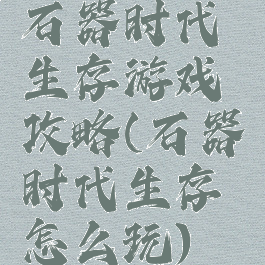 石器时代
生存游戏
攻略(石器
时代生存
怎么玩)